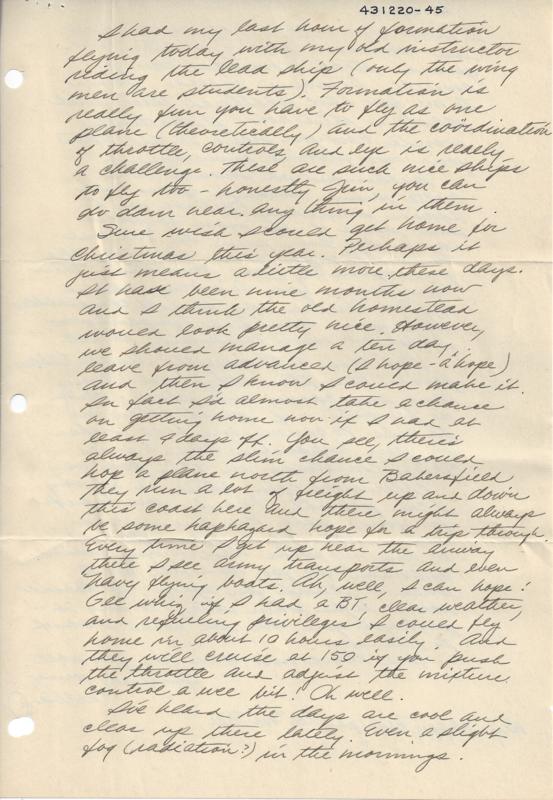 431220-45
I had my last hour of formation
flying today with my old instructor
riding the lead ship (only the wing
men are students). Formation is
really fun you have to fly as one
plane (theoretically) and the coördination
of throttle, controls, and eye is really
a challenge. These are such nice ships
to fly too - honestly Jim, you can
do darn near anything in them.
Sure wish I could get home for
Christmas this year. Perhaps it
just means a little more these days.
It has been nine months now
and I think the old homestead
would look pretty nice. However,
we should manage a ten day
leave from advanced (I hope - a hope)
and then I know I could make it.
In fact I'd almost take a chance
on getting home now if I had at
least 4 days off. You see, there's
always the slim chance I could
hop a plane north from Bakersfield.
They run a lot of freight up and down
this coast here and there might always
be some haphazard hope for a trip through.
Every time I get up near the airway
there I see army transports and even
Navy flying boats. Ah, well, I can hope!
Gee whiz, if I had a BT, clear weather,
and refueling privileges I could fly
home in about 10 hours easily. And
they will cruise at 150 if you push
the throttle and adjust the mixture
control a wee bit. Oh well.
I've heard the days are cool and
clear up there lately. Even a slight
fog (radiation?) in the mornings.